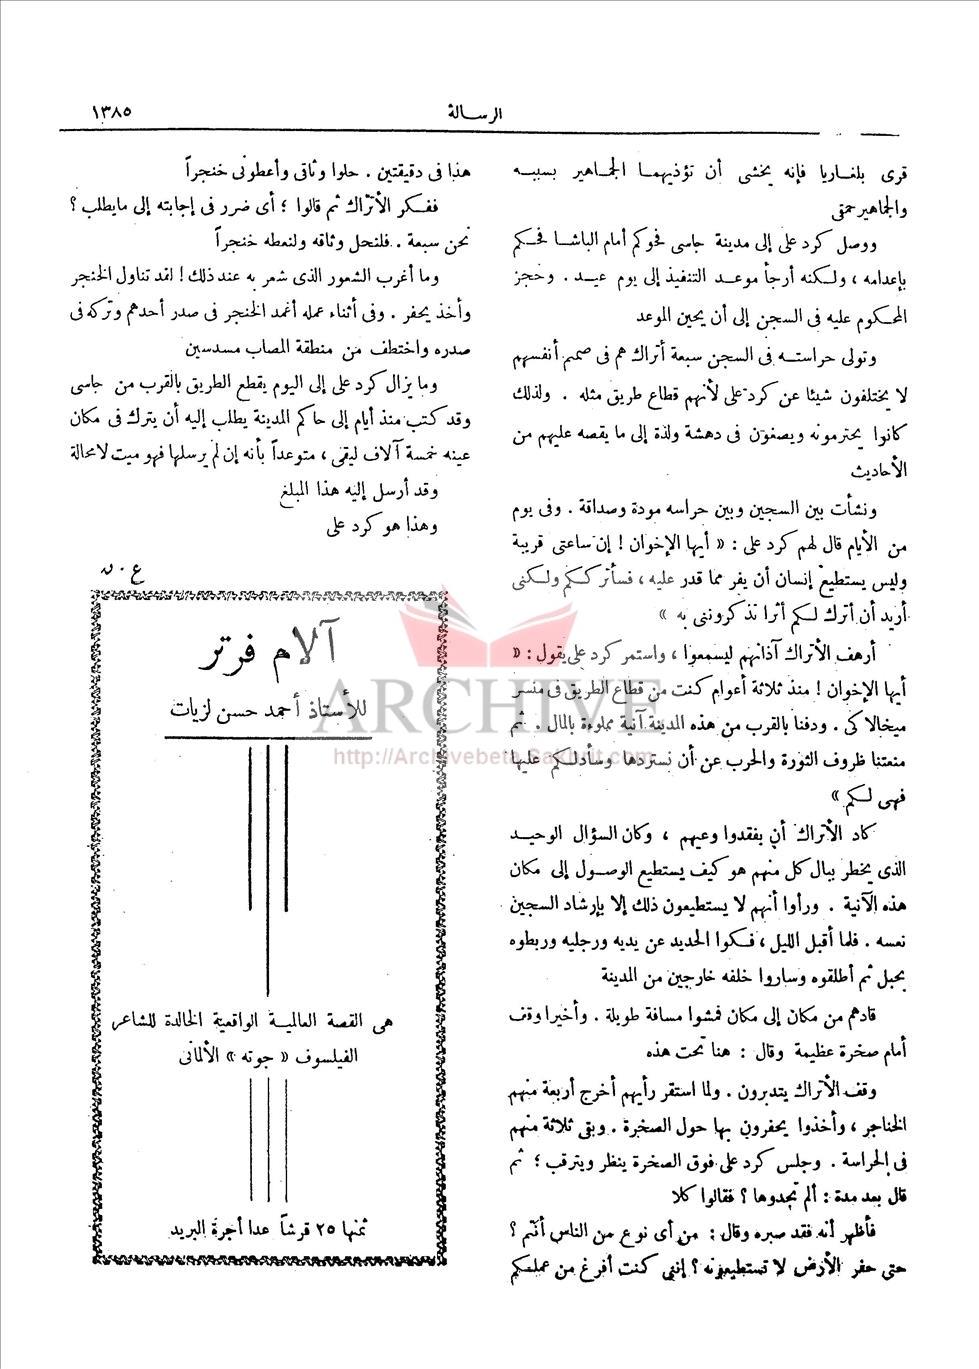 الرسالة
١٣٨٥
قرى بلغاريا فإنه يخشى أن تؤذيهما الجماهير بسببه
والجماهير حمقى
ووصل كرد على إلى مدينة جاسى فحوكم أمام الباشا فحكم
بإعدامه ، ولكنه أرجأ موعد التنفيذ إلى يوم عيد . وحجز
المحكوم عليه فى السجن إلى أن يحين الموعد
وتولى حراسته فى السجن سبعة أتراك هم فى صميم أنفسهم
لا يختلفون شيئا عن كرد على لأنهم قطاع طريق مثله . ولذلك
كانوا يحترمونه ويصغون فى دهشة ولذة إلى ما يقصه عليهم من
الأحاديث
ونشأت بين السجين وبين حراسه مودة وصداقة . وفى يوم
من الأيام قال لهم كرد على : « أيها الإخوان ! إن ساعتى قريبة
وليس يستطيع إنسان أن يفر مما قدر عليه ، فسأترككم ولكنى
أريد أن أترك لكم أثرا تذكروننى به »
أرهف الأتراك آذانهم ليسمعوا ، واستمر كرد على يقول : «
أيها الإخوان ! منذ ثلاثة أعوام كنت من قطاع الطريق فى منسر
ميخالاكى . ودفنا بالقرب من هذه المدينة آنية مملوءة بالمال . ثم
منعتنا ظروف الثورة والحرب عن أن نستردها وسأدلكم عليها
فهى لكم »
كاد الأتراك أن يفقدوا وعيهم ، وكان السؤال الوحيد
الذى يخطر ببال كل منهم هو كيف يستطيع الوصول إلى مكان
هذه الآنية . ورأوا أنهم لا يستطيعون ذلك إلا بإرشاد السجين
نفسه . فلما أقبل الليل ، فكوا الحديد عن يديه ورجليه وربطوه
بحبل ثم أطلقوه وساروا خلفه خارجين من المدينة
قادهم من مكان إلى مكان فمشوا مسافة طويلة . وأخيرا وقف
أمام صخرة عظيمة وقال : هنا تحت هذه
وقف الأتراك يتدبرون . ولما استقر رأيهم أخرج أربعة منهم
الخناجر ، وأخذوا يحفرون بها حول الصخرة . وبقى ثلاثة منهم
فى الحراسة . وجلس كرد على فوق الصخرة ينظر ويترقب ؛ ثم
قال بعد مدة : ألم تجدوها ؟ فقالوا كلا
فأظهر أنه فقد صبره وقال : من أى نوع من الناس أنتم ؟
حتى حفر الأرض لا تستطيعونه ؟ إننى كنت أفرغ من عملكم
هذا فى دقيقتين . حلوا وثاقى وأعطونى خنجراً
ففكر الأتراك ثم قالوا ؛ أى ضرر فى إجابته إلى مايطلب ؟
نحن سبعة . . فلنحل وثاقه ولنعطه خنجراً
وما أغرب الشعور الذى شعر به عند ذلك ! لقد تناول الخنجر
وأخذ يحفر . وفى أثناء عمله أغمد الخنجر فى صدر أحدهم وتركه فى
صدره واختطف من منطقة المصاب مسدسين
وما يزال كرد على إلى اليوم يقطع الطريق بالقرب من جاسى
وقد كتب منذ أيام إلى حاكم المدينة يطلب إليه أن يترك فى مكان
عينه خمسة آلاف ليقى ، متوعداً بأنه إن لم يرسلها فهو ميت لامحالة
وقد أرسل إليه هذا المبلغ
وهذا هو كرد على
ع . ن
آلام فرتر
للأستاذ أحمد حسن لزيات
هى القصة العالمية الواقعية الخالدة للشاعر
الفيلسوف « جوته » الألمانى
ثمنها ٢٥ قرشاً عدا أجرة البريد
ARCHIVE
http://Archivebeta.Sakhrit.com